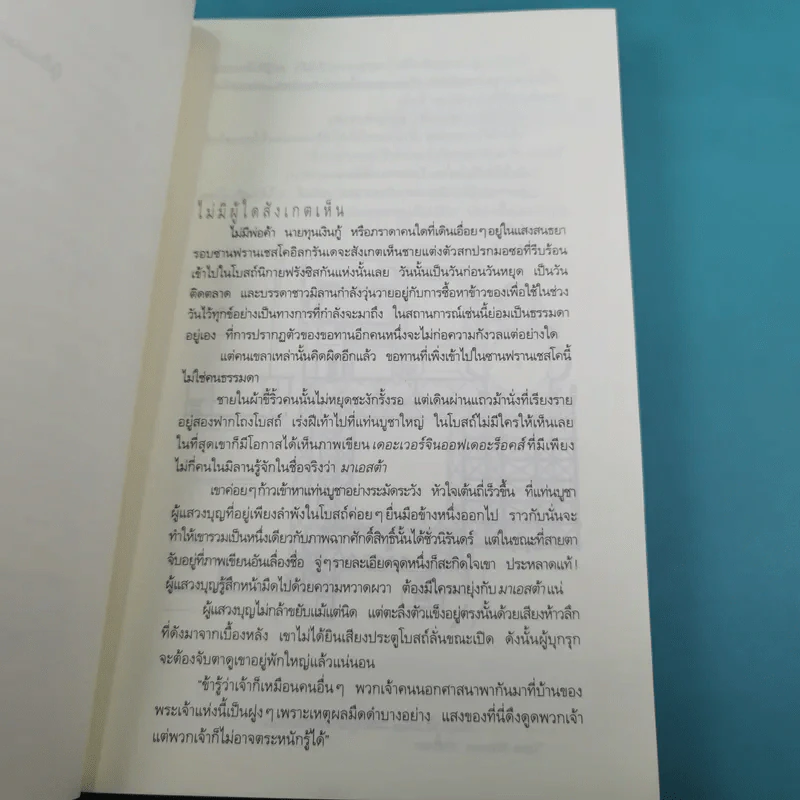 ไม่มีผู้ใดสังเกตเห็น
ไม่มีพ่อค้า นายทุนเงินกู้ หรือภราดาคนใดที่เดินเอื่อยๆอยู่ในแสงสนธยา
รอบซานฟรานเชสโคอิลกรันเดจะสังเกตเห็นชายแต่งตัวสกปรกมอซอที่รีบร้อน
เข้าไปในโบสถ์นิกายฟรังซิสกันแห่งนั้นเลย วันนั้นเป็นวันก่อนวันหยุด เป็นวัน
ติดตลาด และบรรดาชาวมิลานกำลังวุ่นวายอยู่กับการซื้อหาข้าวของเพื่อใช้ในช่วง
วันไว้ทุกข์อย่างเป็นทางการที่กำลังจะมาถึง ในสถานการณ์เช่นนี้ย่อมเป็นธรรมดา
อยู่เอง ที่การปรากฏตัวของขอทานอีกคนหนึ่งจะไม่ก่อความกังวลแต่อย่างใด
แต่คนเขลาเหล่านั้นคิดผิดอีกแล้ว ขอทานที่เพิ่งเข้าไปในซานฟรานเชสโคนี้
ไม่ใช่คนธรรมดา
ชายในผ้าขี้ริ้วคนนั้นไม่หยุดชะงักรั้งรอ แต่เดินผ่านแถวม้านั่งที่เรียงราย
อยู่สองฟากโถงโบสถ์ เร่งฝีเท้าไปที่แท่นบูชาใหญ่ ในโบสถ์ไม่มีใครให้เห็นเลย
ในที่สุดเขาก็มีโอกาสได้เห็นภาพเขียน เดอะเวอร์จินออฟเดอะร็อคส์ ที่มีเพียง
ไม่กี่คนในมิลานรู้จักในชื่อจริงว่า มาเอสต้า
เขาค่อยๆก้าวเข้าหาแท่นบูชาอย่างระมัดระวัง หัวใจเต้นถี่เร็วขึ้น ที่แท่นบูชา
ผู้แสวงบุญที่อยู่เพียงลำพังในโบสถ์ค่อยๆยื่นมือข้างหนึ่งออกไป ราวกับนั่นจะ
ทำให้เขารวมเป็นหนึ่งเดียวกับภาพฉากศักดิ์สิทธิ์นั้นได้ชั่วนิรันดร์ แต่ในขณะที่สายตา
จับอยู่ที่ภาพเขียนอันเลื่องชื่อ จู่ๆรายละเอียดจุดหนึ่งก็สะกิดใจเขา ประหลาดแท้!
ผู้แสวงบุญรู้สึกหน้ามืดไปด้วยความหวาดผวา ต้องมีใครมายุ่งกับ มาเอสต้า แน่
ผู้แสวงบุญไม่กล้าขยับแม้แต่นิด แต่ตะลึงตัวแข็งอยู่ตรงนั้นด้วยเสียงห้าวลึก
ที่ดังมาจากเบื้องหลัง เขาไม่ได้ยินเสียงประตูโบสถ์ลั่นขณะเปิด ดังนั้นผู้บุกรุก
จะต้องจับตาดูเขาอยู่พักใหญ่แล้วแน่นอน
"ข้ารู้ว่าเจ้าก็เหมือนคนอื่นๆ พวกเจ้าคนนอกศาสนาพากันมาที่บ้านของ
พระเจ้าแห่งนี้เป็นฝูงๆเพราะเหตุผลมืดดำบางอย่าง แสงของที่นี่ดึงดูดพวกเจ้า
แต่พวกเจ้าก็ไม่อาจตระหนักรู้ได้"